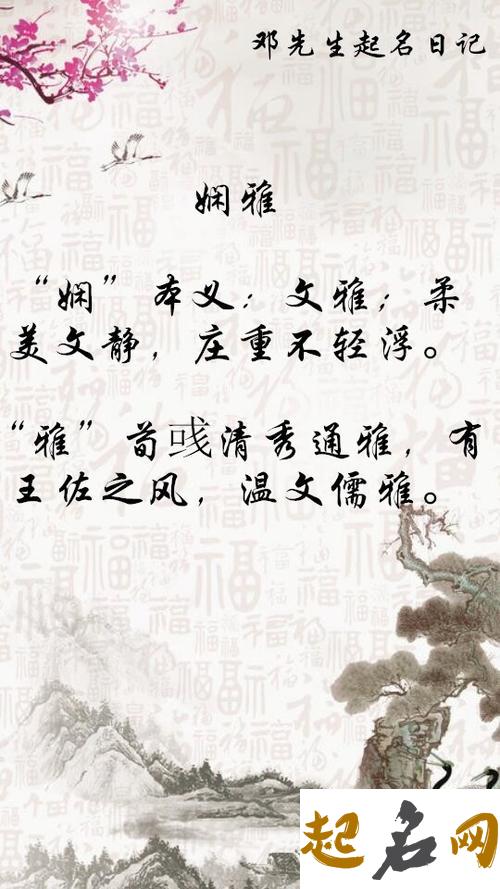 邓先生起名日记
娴雅
“娴”本义：文雅；柔
美文静，庄重不轻浮。
“雅”荀彧清秀通雅，有
王佐之风，温文儒雅。
起名网